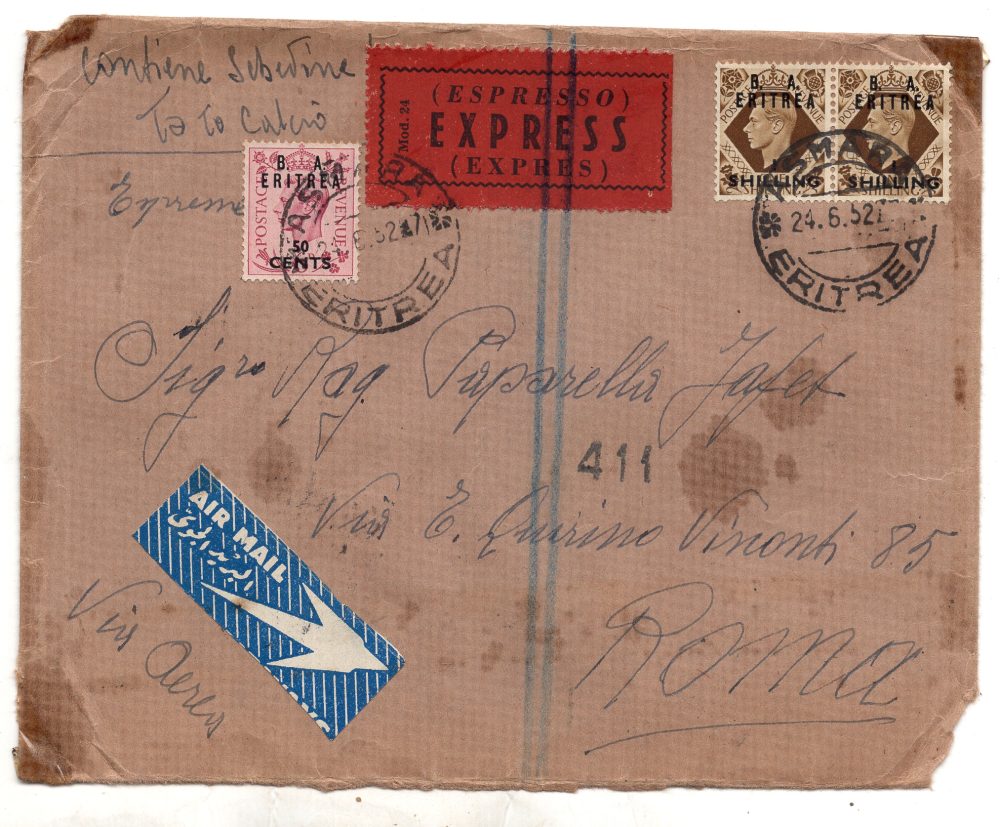 Contiene Schedine
To To Calcio
Espresso
Mod. 24
(ESPRESSO)
EXPRESS
(EXPRES)
B. A.
ERITREA
POSTAGE
REVENUE
50
CENTS
ASMARA
24.6.52.17
ERITREA
B. A.
ERITREA
POSTAGE
REVENUE
1
SHILLING
B. A.
ERITREA
REVENUE
1
SHILLING
ASMARA
24.6.52.17
ERITREA
Sigro Rag Paparella Jafet
411
Via E. Quirino Visconti 85
Roma
AIR MAIL
البريد الجوي
Via Aerea